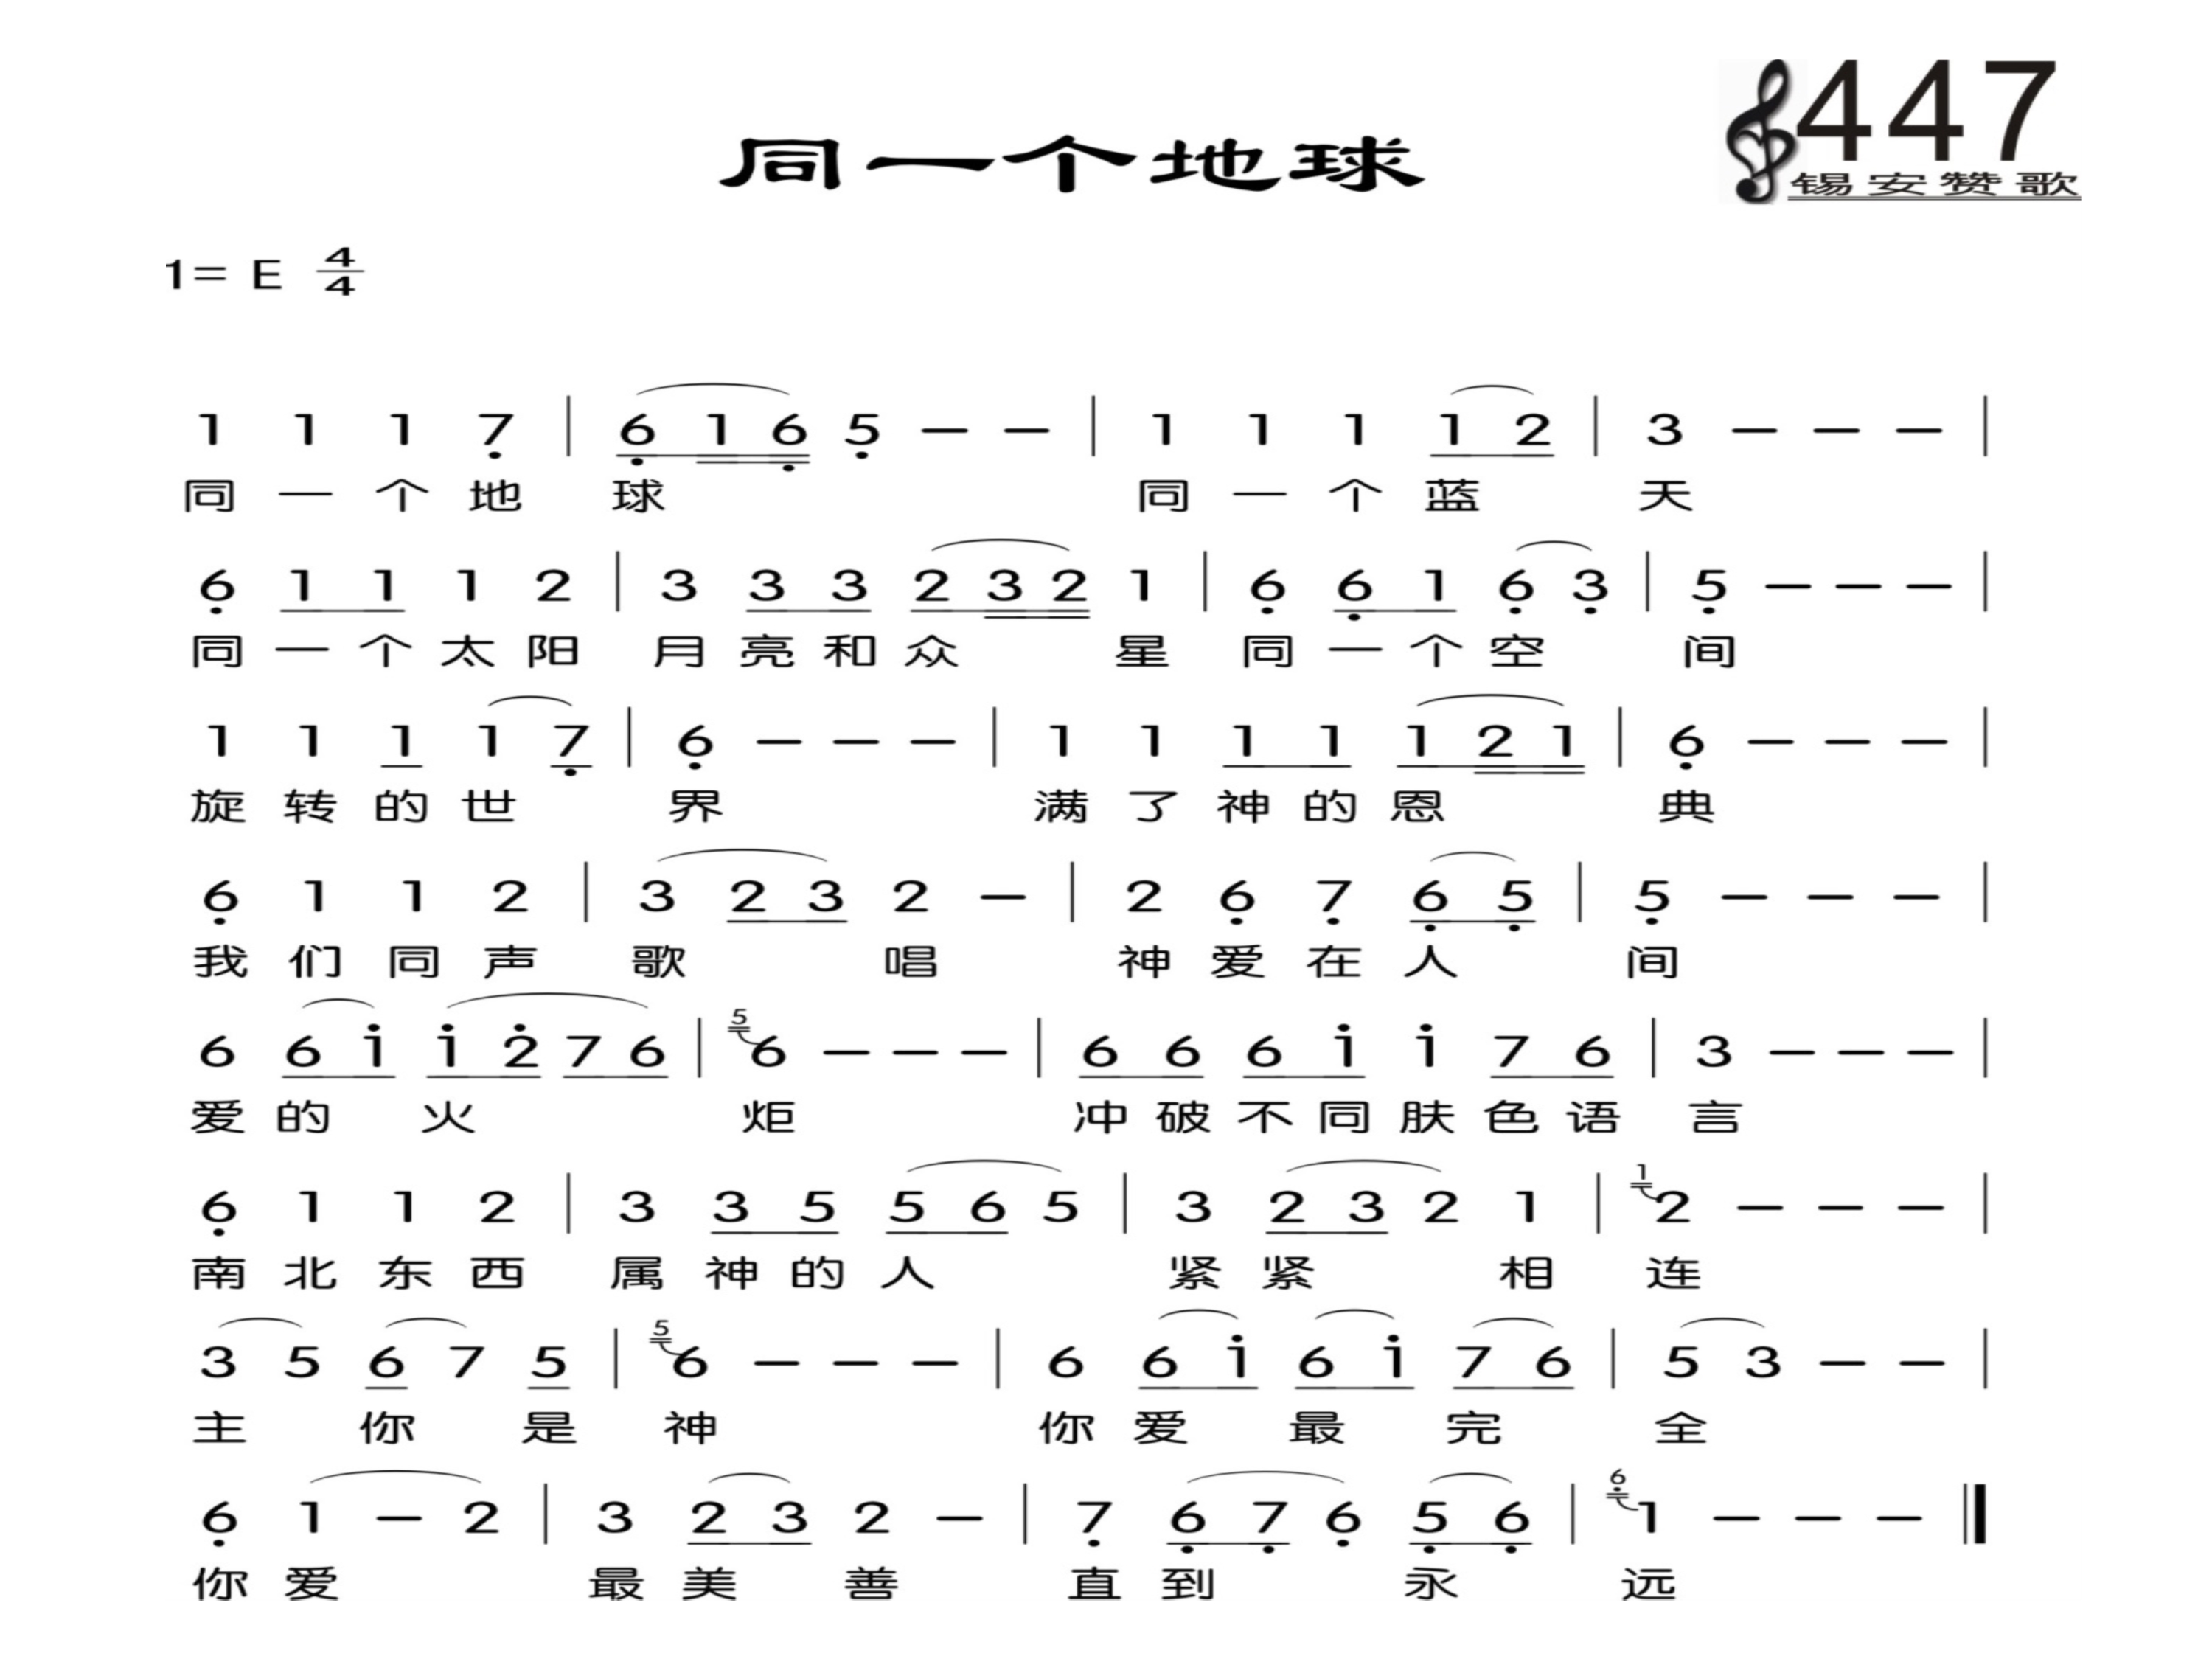 447
锡安赞歌
同一个地球
1= E 4/4
1 1 1 7 | 6 1 6 5 — — | 1 1 1 1 2 | 3 — — — |
同一个地球 同一个蓝天
6 1 1 1 2 | 3 3 3 2 3 2 1 | 6 6 1 6 3 | 5 — — — |
同一个太阳 月亮和众星 同一个空间
1 1 1 1 7 | 6 — — — | 1 1 1 1 1 2 1 | 6 — — — |
旋转的世界 满了神的恩典
6 1 1 2 | 3 2 3 2 — | 2 6 7 6 5 | 5 — — — |
我们同声歌唱 神爱在人间
6 6 i i 2 7 6 | 5 6 — — — | 6 6 6 i i 7 6 | 3 — — — |
爱的火炬 冲破不同肤色语言
6 1 1 2 | 3 3 5 5 6 5 | 3 2 3 2 1 | 1 2 — — — |
南北东西 属神的人 紧紧相连
3 5 6 7 5 | 5 6 — — — | 6 6 i 6 i 7 6 | 5 3 — — |
主你是神 你爱最完全
6 1 — 2 | 3 2 3 2 — | 7 6 7 6 5 6 | 6 1 — — — ‖
你爱最美善 直到永远